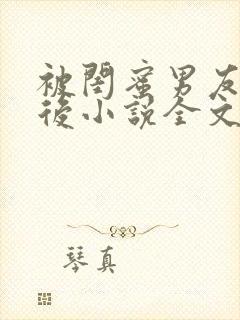 被閨蜜男友
後小說全文
琴真